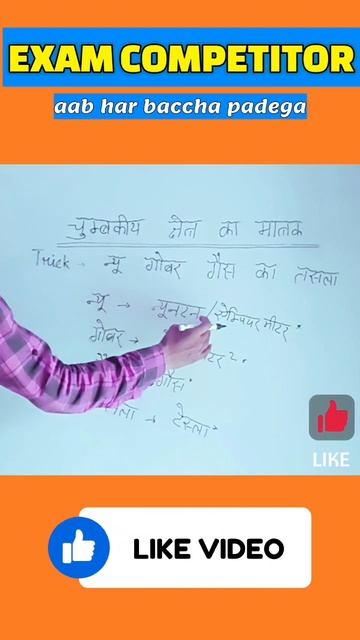 EXAM COMPETITOR
aab har baccha padega
चुम्बकीय क्षेत्र का मात्रक
Trick - न्यू गोबर गैस का तसला
न्यू → न्यूनटन / ऐम्पियर मीटर
गोबर → टर².
गौस
→ टेस्ला
LIKE
LIKE VIDEO